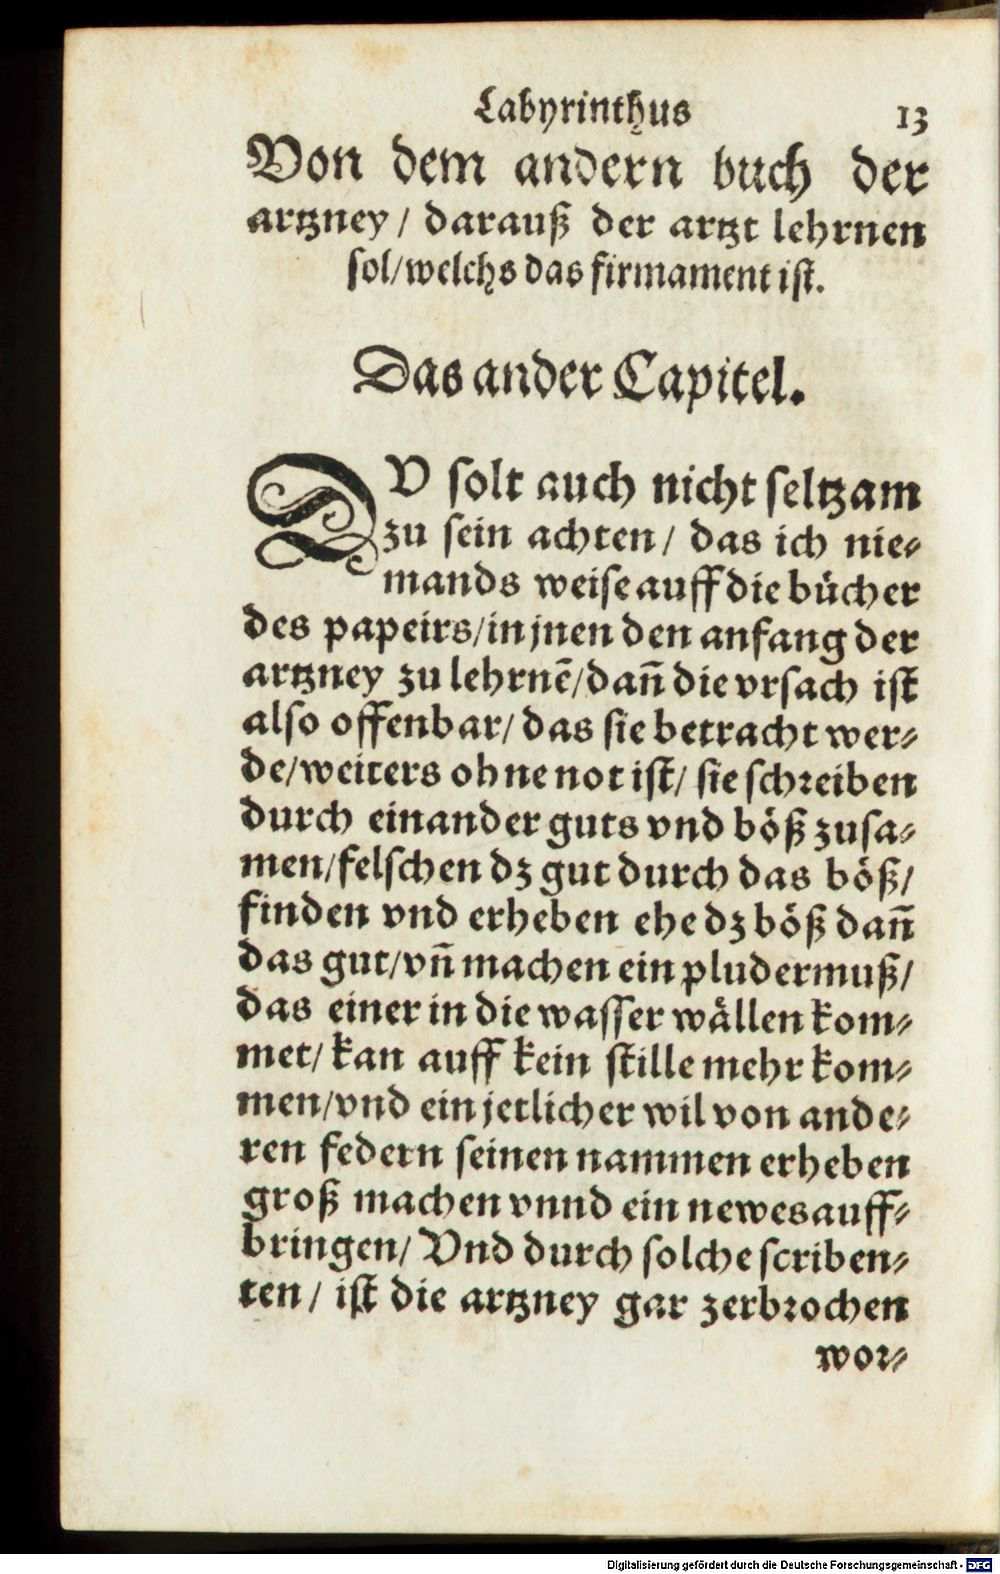 Labyrinthus 13
Von dem andern buch der
artzney / darauß der artzt lehrnen
sol/welchs das firmament ist.
Das ander Capitel.
DV solt auch nicht seltzam
zu sein achten / das ich nie⸗
mands weise auff die bücher
des papeirs/in jnen den anfang der
artzney zu lehrnē/dañ die vrsach ist
also offenbar/ das sie betracht wer⸗
de/weiters ohne not ist/ sie schreiben
durch einander guts vnd böß zusa⸗
men/felschen dz gut durch das böß/
finden vnd erheben ehe dz böß dañ
das gut/vñ machen ein pludermuß/
das einer in die wasser wällen kom⸗
met/ kan auff kein stille mehr kom⸗
men/vnd ein jetlicher wil von ande⸗
ren federn seinen nammen erheben
groß machen vnnd ein newes auff⸗
bringen/ Vnd durch solche scriben⸗
ten / ist die artzney gar zerbrochen
wor⸗
Digitalisierung gefördert durch die Deutsche Forschungsgemeinschaft - DFG